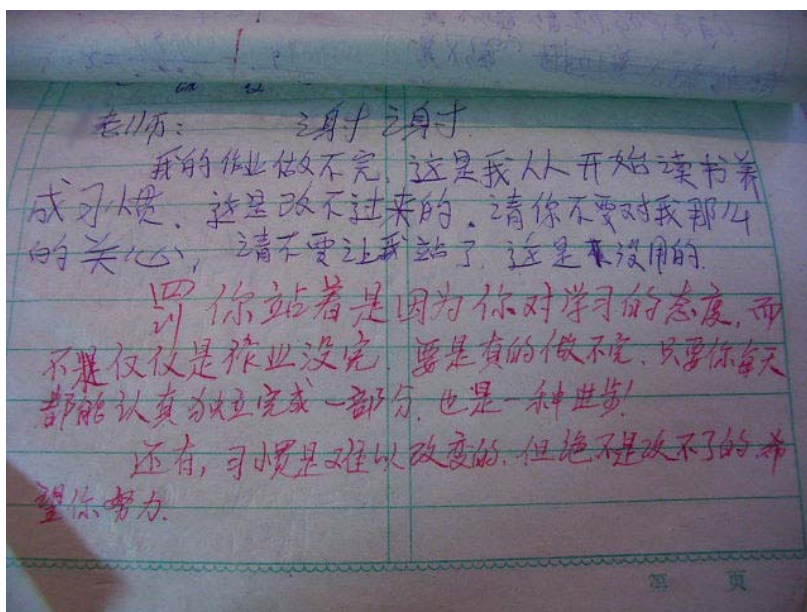 老师：谢谢
我的作业做不完，这是我从开始读书养
成习惯，这是改不过来的，请你不要对我那么
的关心，请不要让我站了，这是没用的
罚你站着是因为你对学习的态度，而
不仅仅是作业没完，要是真的做不完，只要你每天
都能认真独立完成一部分，也是一种进步！
还有，习惯是难以改变的，但绝不是改不了的，希
望你努力.
第 页